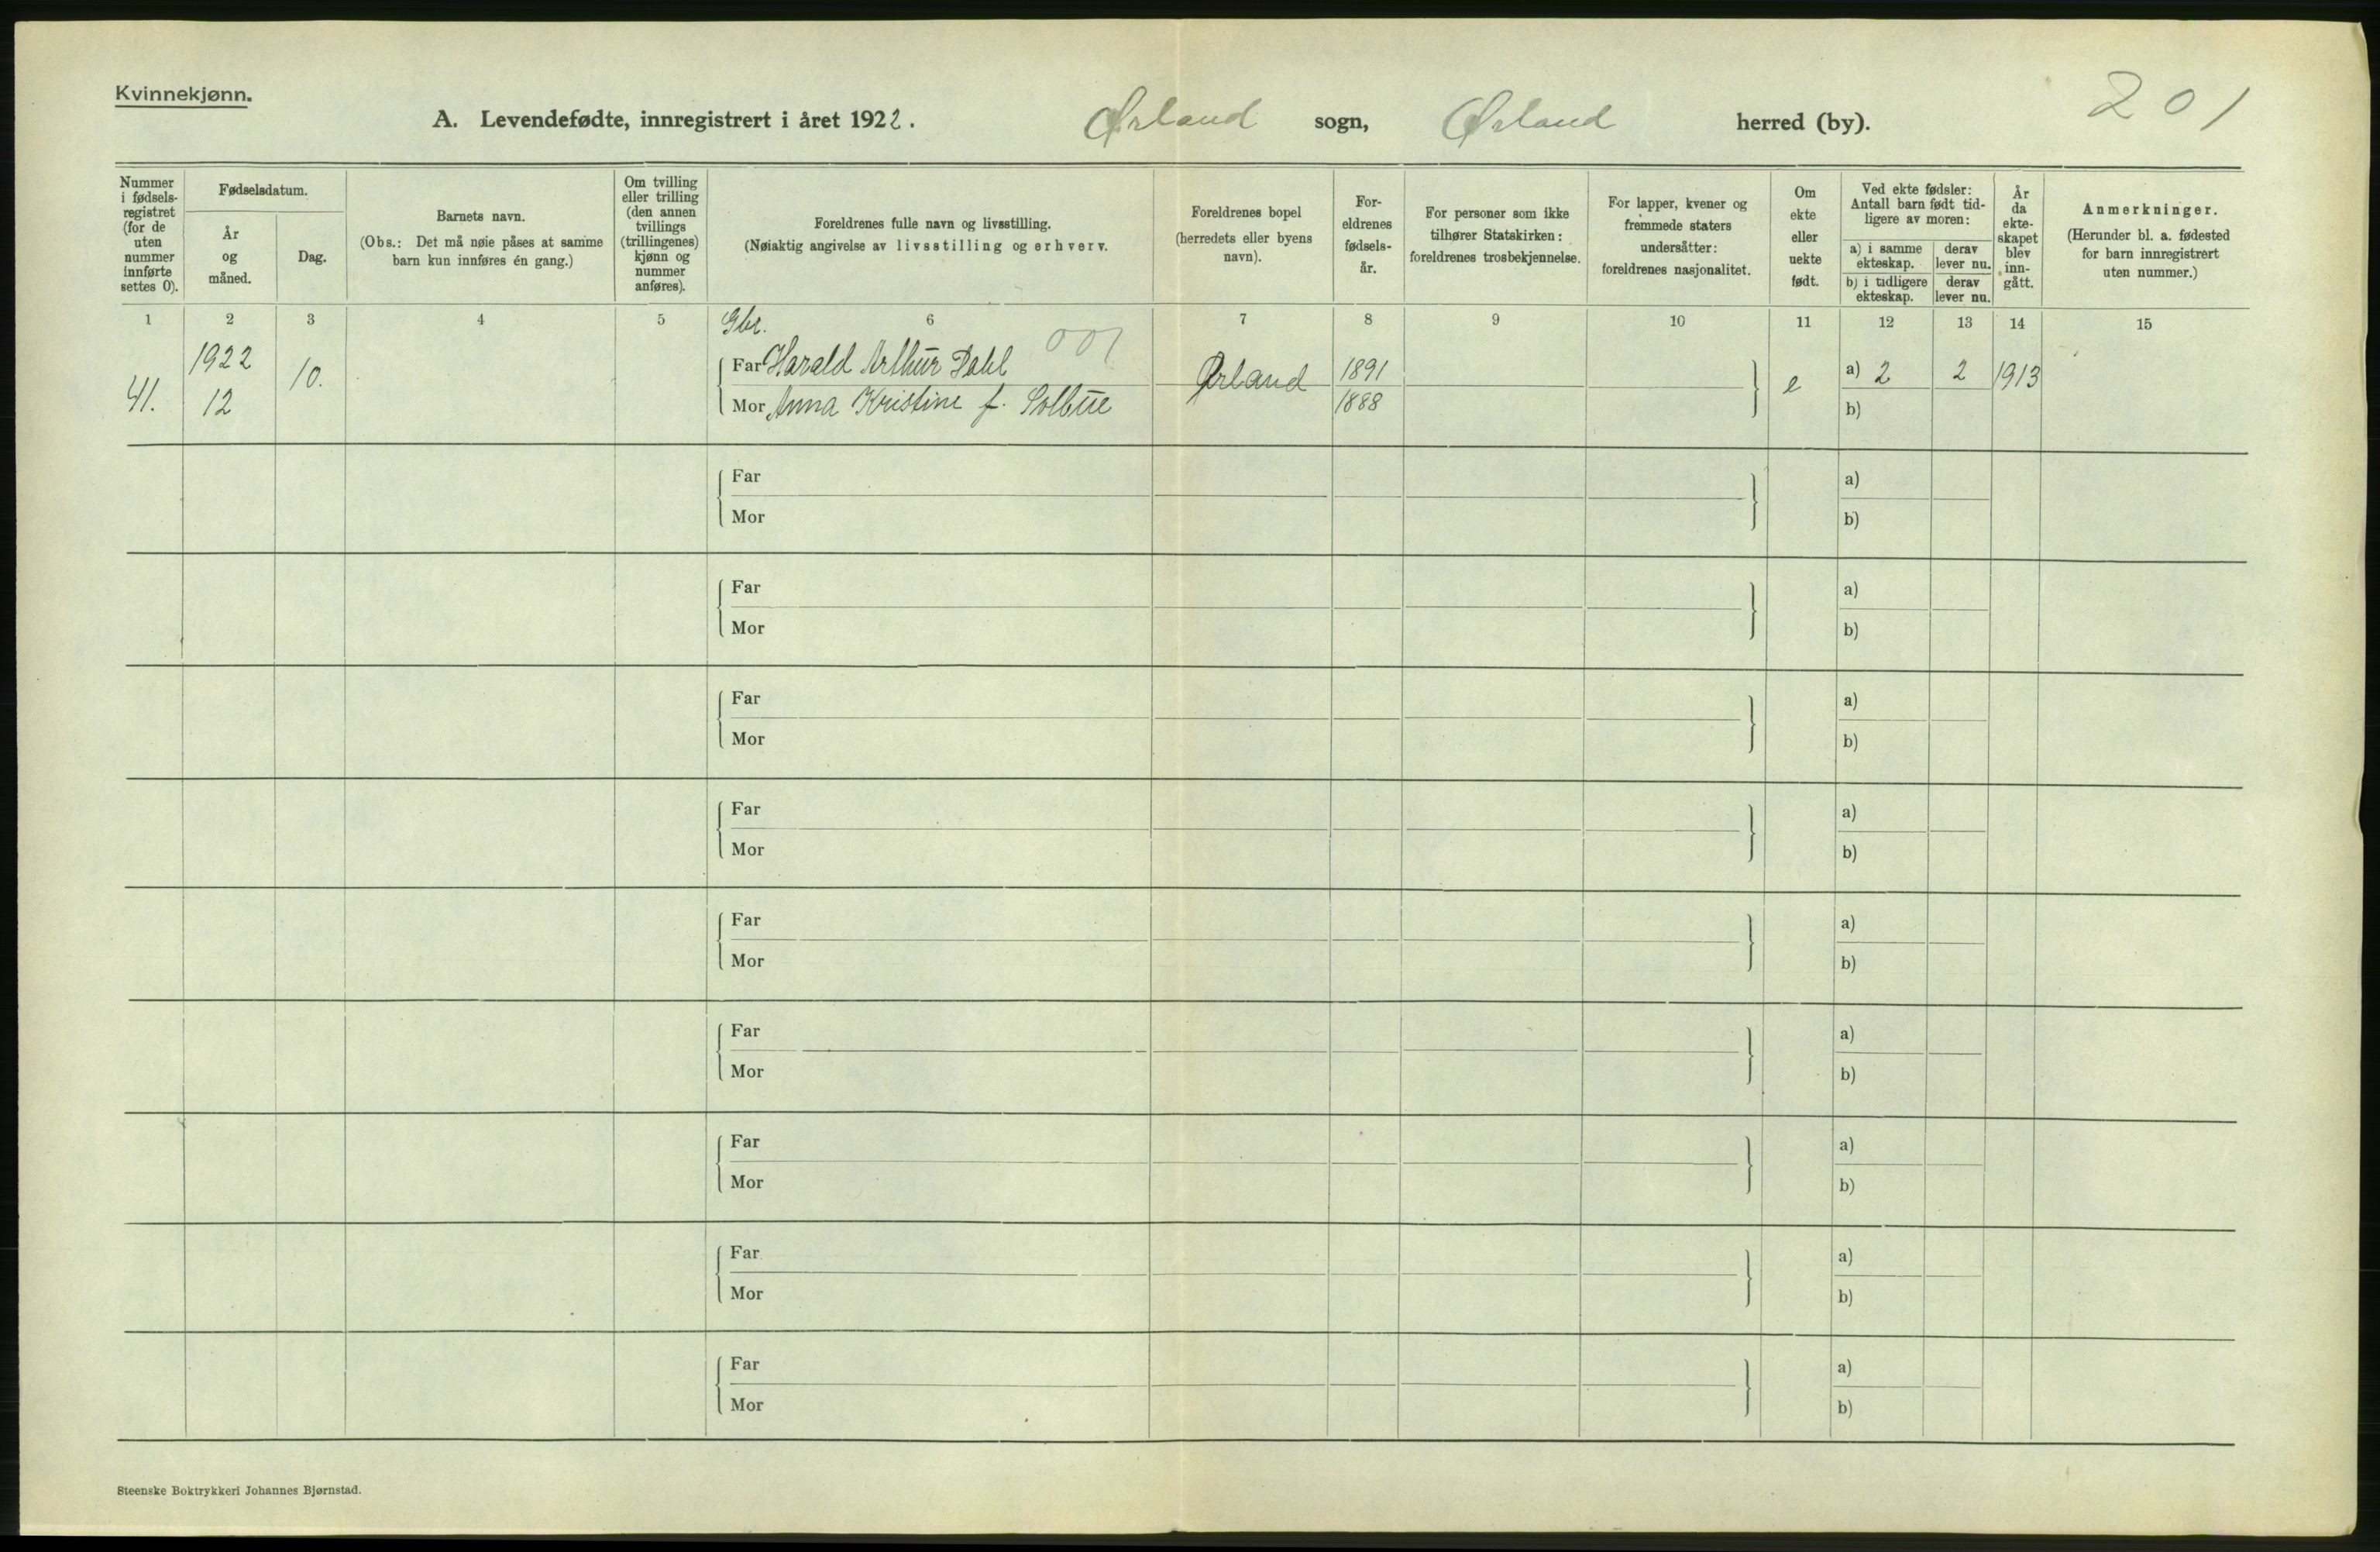 Kvinnekjønn.
A. Levendefødte, innregistrert i året 1922. Ørland sogn, Ørland herred (by).
201
Nummer
i fødsels-
registret
(for de
uten
nummer
innførte
settes 0).
Fødselsdatum.
År
og
måned.
Dag.
Barnets navn.
(Obs.: Det må nøie påses at samme
barn kun innføres én gang.)
Om tvilling
eller trilling
(den annen
tvillings
(trillingenes)
kjønn og
nummer
anføres).
Foreldrenes fulle navn og livsstilling.
(Nøiaktig angivelse av livsstilling og erhverv.
Foreldrenes bopel
(herredets eller byens
navn).
For-
eldrenes
fødsels-
år.
For personer som ikke
tilhører Statskirken:
foreldrenes trosbekjennelse.
For lapper, kvener og
fremmede staters
undersåtter:
foreldrenes nasjonalitet.
Om
ekte
eller
uekte
født.
Ved ekte fødsler:
Antall barn født tid-
ligere av moren:
a) i samme
ekteskap.
derav
lever nu.
b) i tidligere
ekteskap.
derav
lever nu.
År
da
ekte-
skapet
blev
inn-
gått.
Anmerkninger.
(Herunder bl. a. fødested
for barn innregistrert
uten nummer.)
1 2 3 4 5 6 7 8 9 10 11 12 13 14 15
Gbr.
001
41. 1922 12 10.
Far Harald Arthur Dahl
Mor Anna Kristine f. Solbue
Ørland
1891
1888
e
a) 2 2 1913
b)
Far a)
Mor b)
Far a)
Mor b)
Far a)
Mor b)
Far a)
Mor b)
Far a)
Mor b)
Far a)
Mor b)
Far a)
Mor b)
Far a)
Mor b)
Far a)
Mor b)
Steenske Boktrykkeri Johannes Bjørnstad.